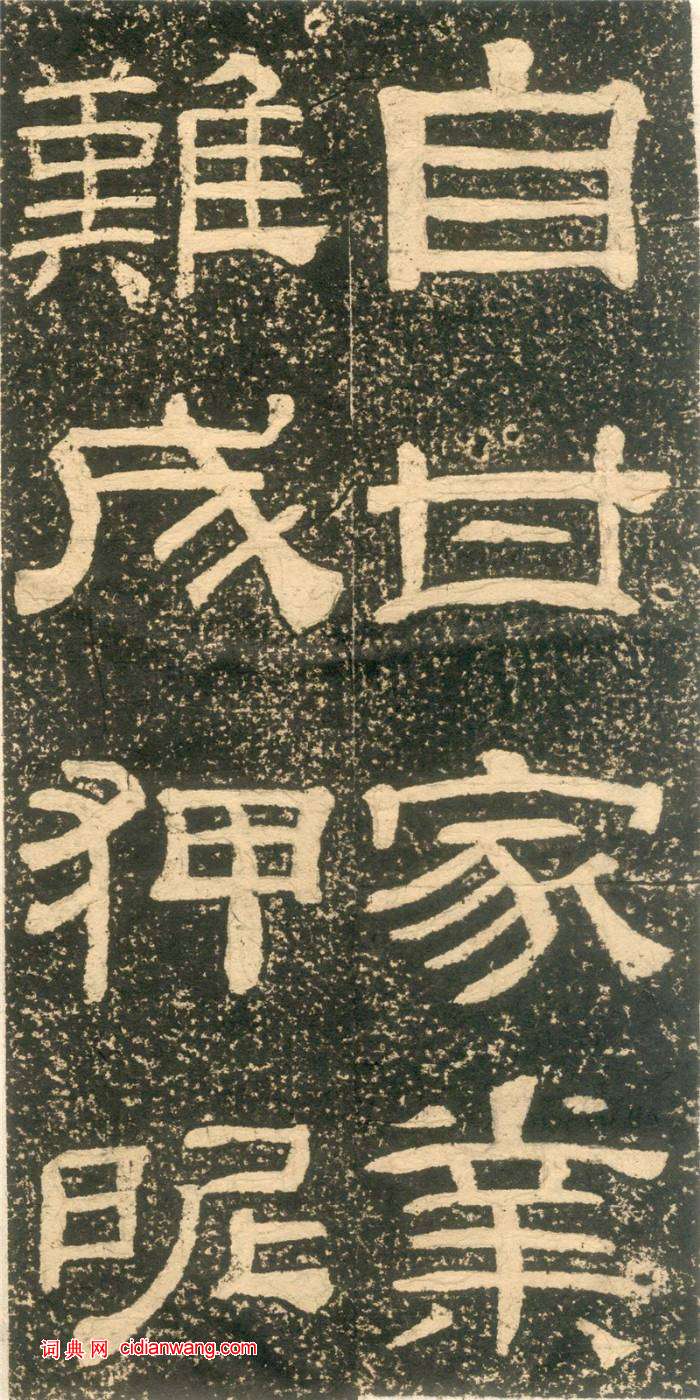 自甘家業
難成狎昵
词典网 cidianwang.com